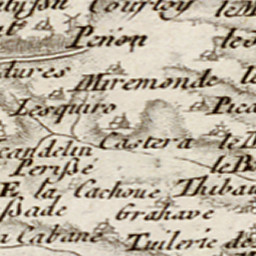 Courtoy le M
Penon le
dures
Miremonde
Lesquiro Pica
Castera le M
Perisse le B
E la Cachoue Thibau
ßade Grahave
a Cabane Tuilerie de